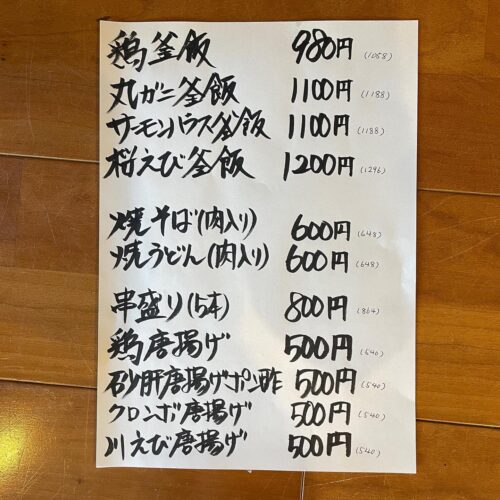 鶏釜飯 980円 (1058)
丸ガニ釜飯 1100円 (1188)
サーモンハラス釜飯 1100円 (1188)
桜えび釜飯 1200円 (1296)
焼そば(肉入り) 600円 (648)
焼うどん(肉入り) 600円 (648)
串盛り(5本) 800円 (864)
鶏唐揚げ 500円 (540)
砂肝唐揚げポン酢 500円 (540)
クロンボ唐揚げ 500円 (540)
川えび唐揚げ 500円 (540)